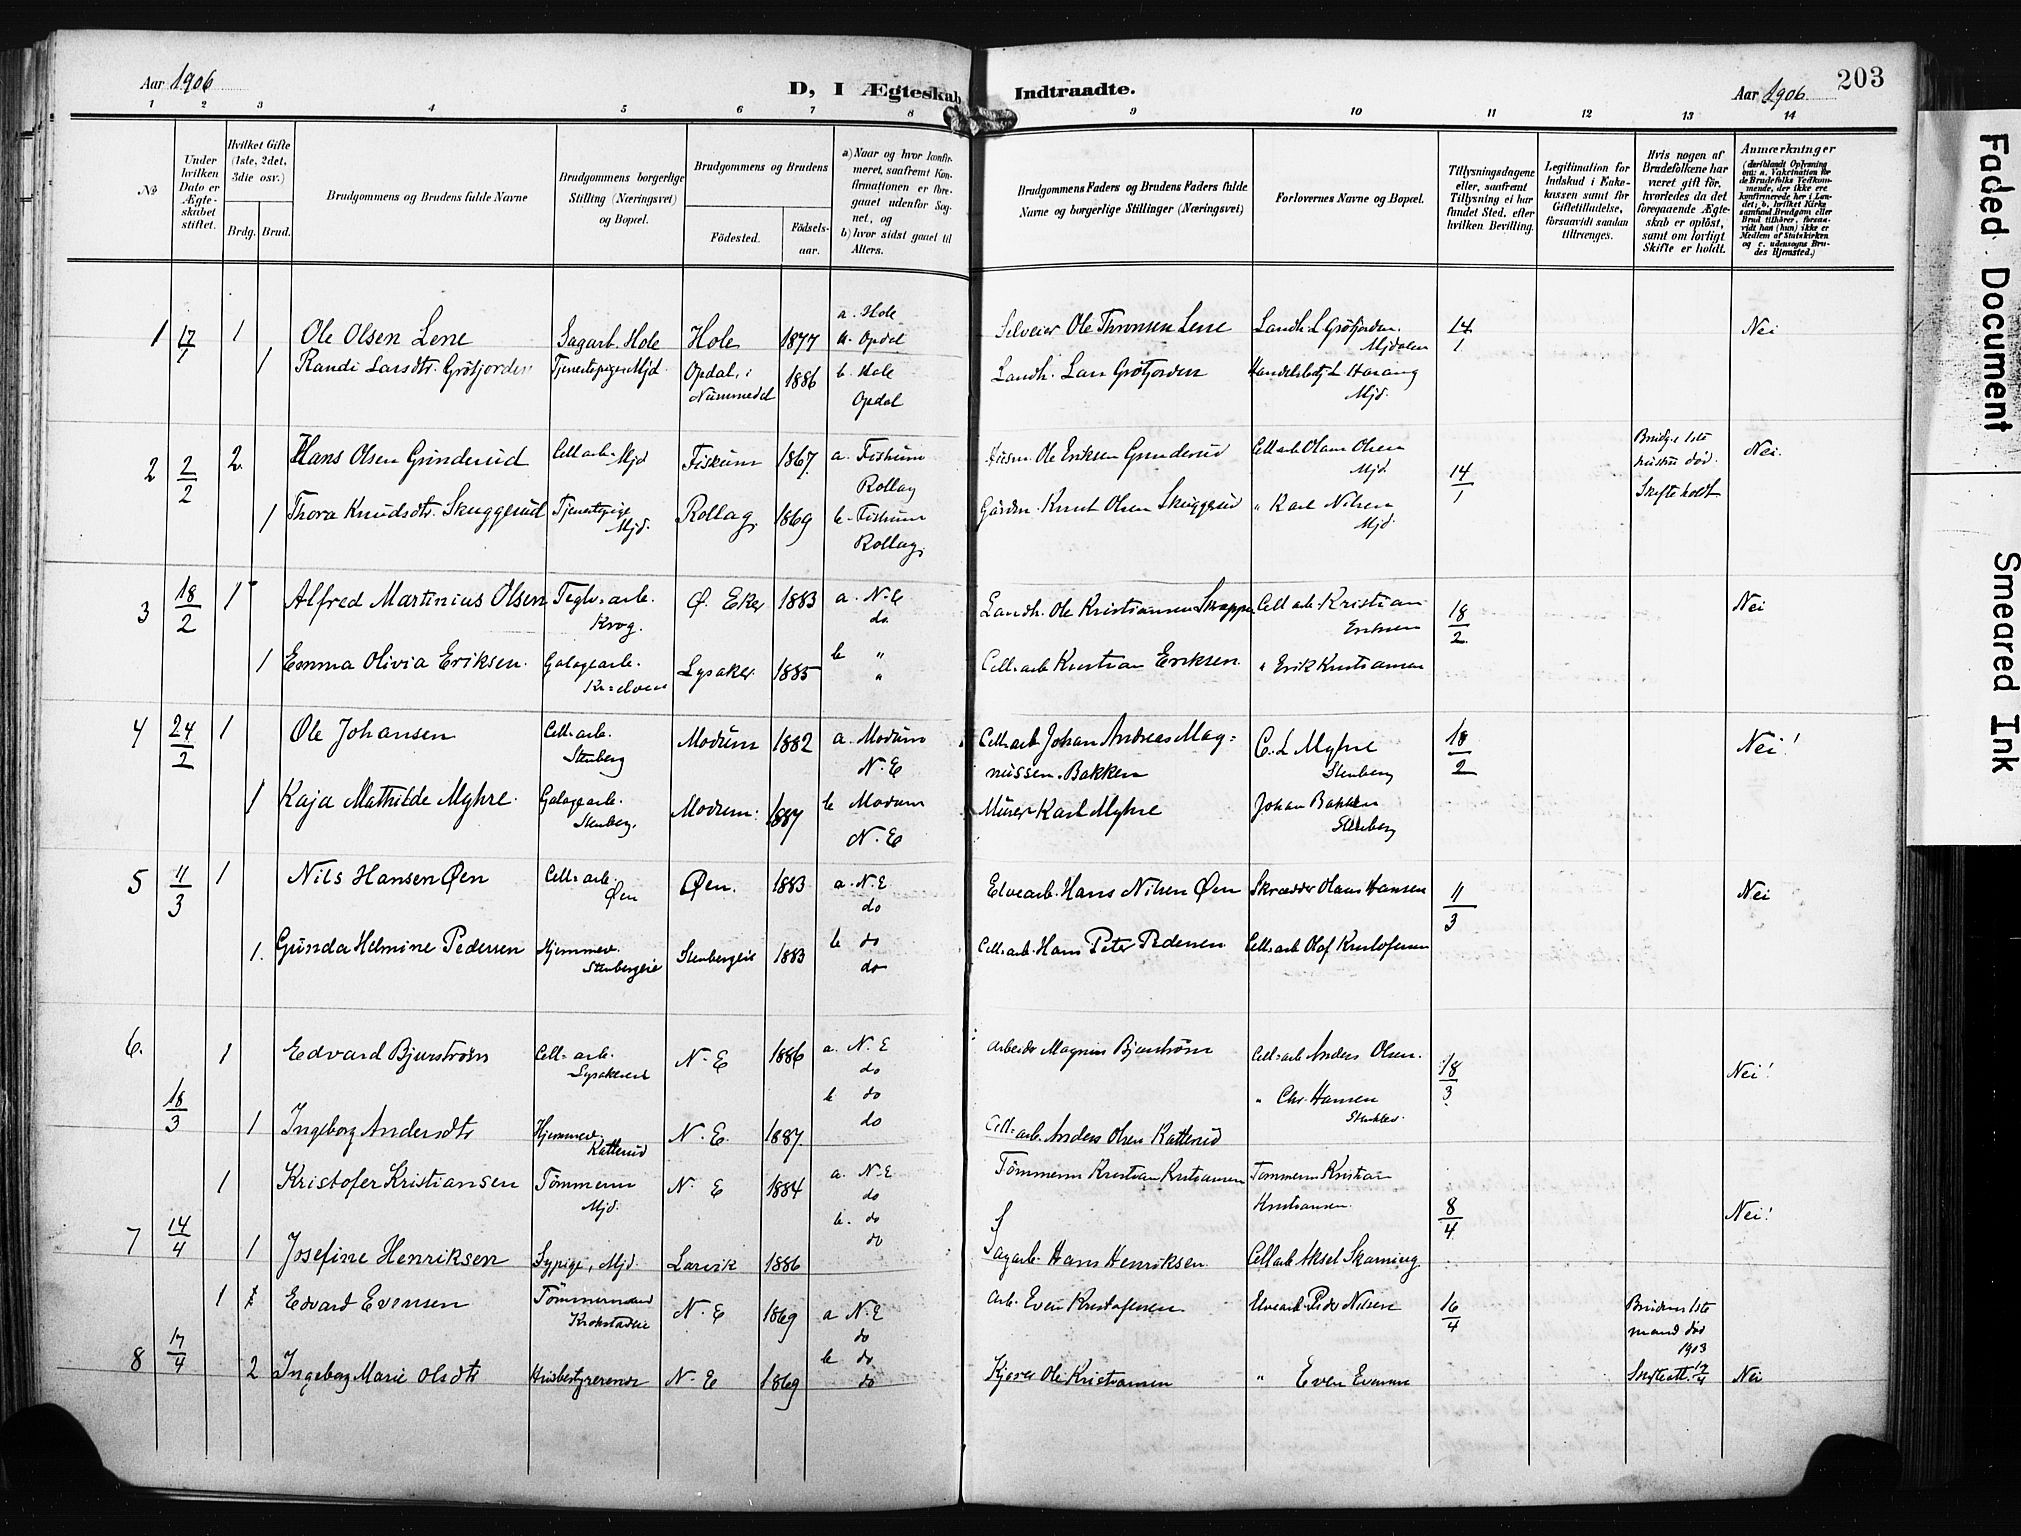 Aar 1906
D, I Ægteskab Indtraadte.
Aar 1906
203
1 2 3 4 5 6 7 8 9 10 11 12 13 14
No
Under hvilken Dato er Ægte-skabet stiftet.
Hvilket Gifte (1ste, 2det, 3die osv.)
Brdg. Brud.
Brudgommens og Brudens fulde Navne
Brudgommens borgerlige Stilling (Næringsvei) og Bopæl.
Brudgommens og Brudens
Fødested.
Fødsels-aar.
a) Naar og hvor konfir-meret, saafremt Kon-firmationen er fore-gaaet udenfor Sog-net, og
b) hvor sidst gaaet til Alters.
Brudgommens Faders og Brudens Faders fulde Navne og borgerlige Stillinger (Næringsvei)
Forlovernes Navne og Bopæl.
Tillysningsdagene eller, saafremt Tillysning ei har fundet Sted, efter hvilken Bevilling.
Legitimation for Indskud i Enke-kassen samt for Giftetilladelse, forsaavidt saadan tiltrænges.
Hvis nogen af Brudefolkene har været gift før, hvorledes da det foregaaende Ægte-skab er opløst, samt om lovligt Skifte er holdt.
Anmærkninger
1 17/1 1 Ole Olsen Lene Sagarb. Hole Hole 1877 a. Hole Selveier Ole Thronsen Lene Landh. L Gröfjorden Mjdalen 14/1 Nei
a. Opdal
1 Randi Larsdtr. Gröfjorden Tjenestepige Mjd. Opdal i Nummedal 1886 b. Hole Landh. Lars Gröfjorden
Opdal Mjd.
2 2/2 2. Hans Olsen Grinderud Cell arb. Mjd Fiskum 1867 a. Fiskum Husm. Ole Eriksen Grinderud Cell arb Olaus Olsen Mjd. 14/1 Brudg.s 1ste hustru død. Skifte holdt Nei.
Rollag
1 Thora Knudsdtr. Skuggerud Tjenestepige Mjd. Rollag 1869 b. Fiskum Gårdm. Knut Olsen Skuggerud " Karl Nilsen Mjd
Rollag
3 18/2 1 Alfred Martinius Olsen Teglv.arb. Krog. Ø. Eker 1883 a. N.E Landh. Ole Kristiansen Cell arb. Kristian Eriksen 18/2 Nei
do.
1 Emma Olivia Eriksen. Lysaker 1885 b " Cell.arb Kristian Eriksen. " Erik Kristiansen
"
4 24/2 1 Ole Johansen Cell.arb. Stenberg Modum 1882 a. Modum Cell.arb Johan Andreas Mag-nussen. Bakken C. L Myhre Stenberg 18/2 Nei!
N.E
1 Kaja Mathilde Myhre. Stenberg. Modum. 1887 b Modum Murer Karl Myhre Johan Bakken Stenberg
N.E
5 11/3 1 Nils Hansen Øen Cell.arb. Øen Øen. 1883 a. N.E Elvearb. Hans Nilsen Øen Skrædder Olaus Hansen 11/3 Nei
do
1. Gunda Helmine Pedersen Hjemmev. Stenbergeie Stenbergeie 1883 b do Cell.arb. Hans Peter Pedersen Cell.arb Olaf Kristofersen
do
6. 18/3 1 Edvard Bjurström Cell.arb. N.E 1886 a. N.E Arbeider Magnus Bjurström Cell.arb Anders Olsen. 18/3 Nei!
do
b do " Chr. Hansen
1 Ingeborg Andersdtr Hjemmev. Katterud N.E. 1887. do Cell.arb. Anders Olsen Katterud
7 14/4 1 Kristofer Kristiansen Tömmerm Mjd. N. E 1884 a. N.E Tömmerm Kristian Kristiansen Tömmerm Kristian Kristiansen. 8/4 Nei!
do
b. do
1 Josefine Henriksen Sypige, Mjd. Larvik 1886 do Sagarb. Hans Henriksen. Cell arb Aksel Skarning
8 17/4 1 Edvard Evensen Tömmermand Krokstadeie N. E 1869 a N.E Arb. Even Kristofersen Elvearb. Peder Nilsen 16/4 Brudens 1ste mand død 1903
do
2 Ingeborg Marie Olsdtr Husbestyrerinde N. E 1869 b do Kjører Ole Kristiansen " Even Evensen Skifteatt. 12/4 Nei
do
Faded Document
Smeared Ink